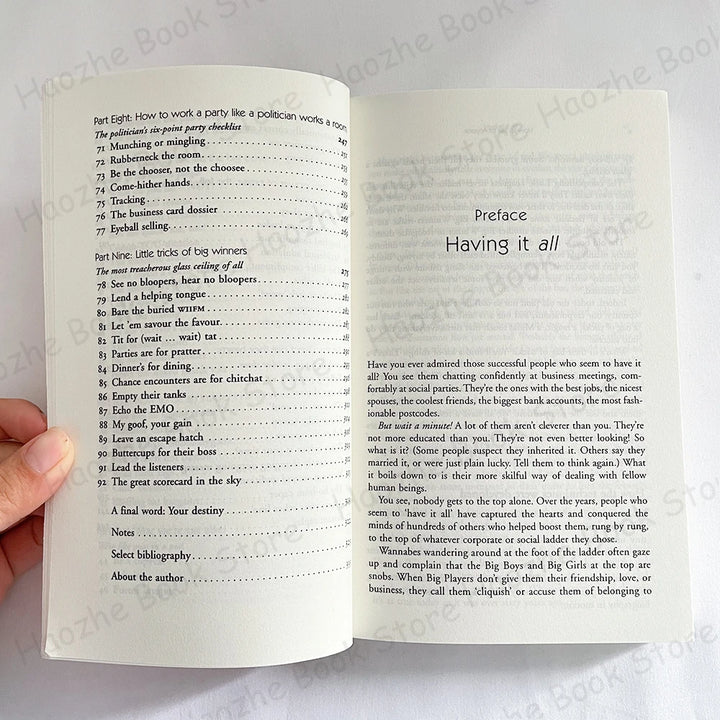 Part Eight: How to work a party like a politician works a room
The politician's six-point party checklist 247
71 Munching or mingling 251
72 Rubberneck the room 252
73 Be the chooser, not the choosee 255
74 Come-hither hands
75 Tracking
76 The business card dossier
77 Eyeball selling
Part Nine: Little tricks of big winners
The most treacherous glass ceiling of all 275
78 See no bloopers, hear no bloopers
79 Lend a helping tongue
80 Bare the buried WIIFM
81 Let 'em savour the favour
82 Tit for (wait ... wait) tat
83 Parties are for pratter
84 Dinner's for dining
85 Chance encounters are for chitchat
86 Empty their tanks
87 Echo the EMO
88 My goof, your gain
89 Leave an escape hatch
90 Buttercups for their boss
91 Lead the listeners
92 The great scorecard in the sky
A final word: Your destiny
Notes
Select bibliography
About the author
Preface
Having it all
Have you ever admired those successful people who seem to have it
all? You see them chatting confidently at business meetings, com-
fortably at social parties. They're the ones with the best jobs, the nicest
spouses, the coolest friends, the biggest bank accounts, the most fash-
ionable postcodes.
But wait a minute! A lot of them aren't cleverer than you. They're
not more educated than you. They're not even better looking! So
what is it? (Some people suspect they inherited it. Others say they
married it, or were just plain lucky. Tell them to think again.) What
it boils down to is their more skilful way of dealing with fellow
human beings.
You see, nobody gets to the top alone. Over the years, people who
seem to 'have it all' have captured the hearts and conquered the
minds of hundreds of others who helped boost them, rung by rung,
to the top of whatever corporate or social ladder they chose.
Wannabes wandering around at the foot of the ladder often gaze
up and complain that the Big Boys and Big Girls at the top are
snobs. When Big Players don't give them their friendship, love, or
business, they call them 'cliquish' or accuse them of belonging to
Haozhe Book Store